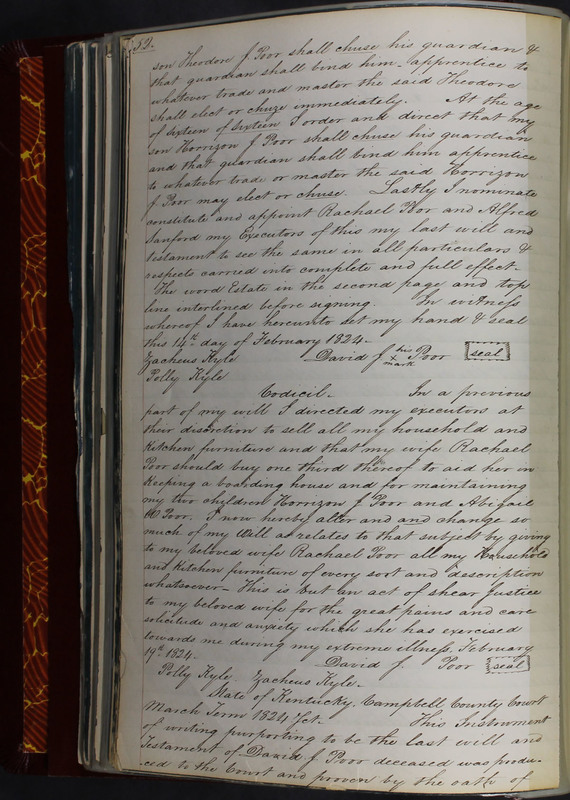 52.
son Theodore J Poor shall chuse his guardian &
that guardian shall bind him apprentice to
whatever trade and master the said Theodore
shall elect or chuze immediately. At the age
of sixteen of sixteen I order and direct that my
son Horrizon J Poor shall chuse his guardian
and that guardian shall bind him apprentice
to whatever trade or master the said Horrizon
J. Poor may elect or chuse. Lastly I nominate
constitute and appoint Rachael Poor and Alfred
Sanford my Executors of this my last will and
testament to see the same in all particulars &
respects carried into complete and full effect-
The word Estate in the second page and top
line interlined before signing. In witness
whereof I have hereunto set my hand & seal
this 14th day of February 1824-
Zacheus Kyle David J his x mark Poor seal
Polly Kyle
Codicil- In a previous
part of my will I directed my executors at
their discretion to sell all my household and
Kitchen furniture and that my wife Rachael
Poor should buy one third thereof to aid her in
Keeping a boarding house and for maintaining
my two children Horrizon J Poor and Abigail
W Poor. I now hereby alter and and change so
much of my Will as relates to that subject by giving
to my beloved wife Rachael Poor all my Household
and Kitchen furniture of every sort and description
whatsoever- This is but an act of shear justice
to my beloved wife for the great pains and care
solicitude and anxiety which she has exercised
towards me during my extreme illness. February
19th 1824- David J. Poor seal
Polly Kyle, Zacheus Kyle-
State of Kentucky, Campbell County Court
March Term 1824 Sct. This Instrument
of writing purporting to be the last will and
Testament of David J Poor deceased was produ-
ced to the Court and proven by the oath of